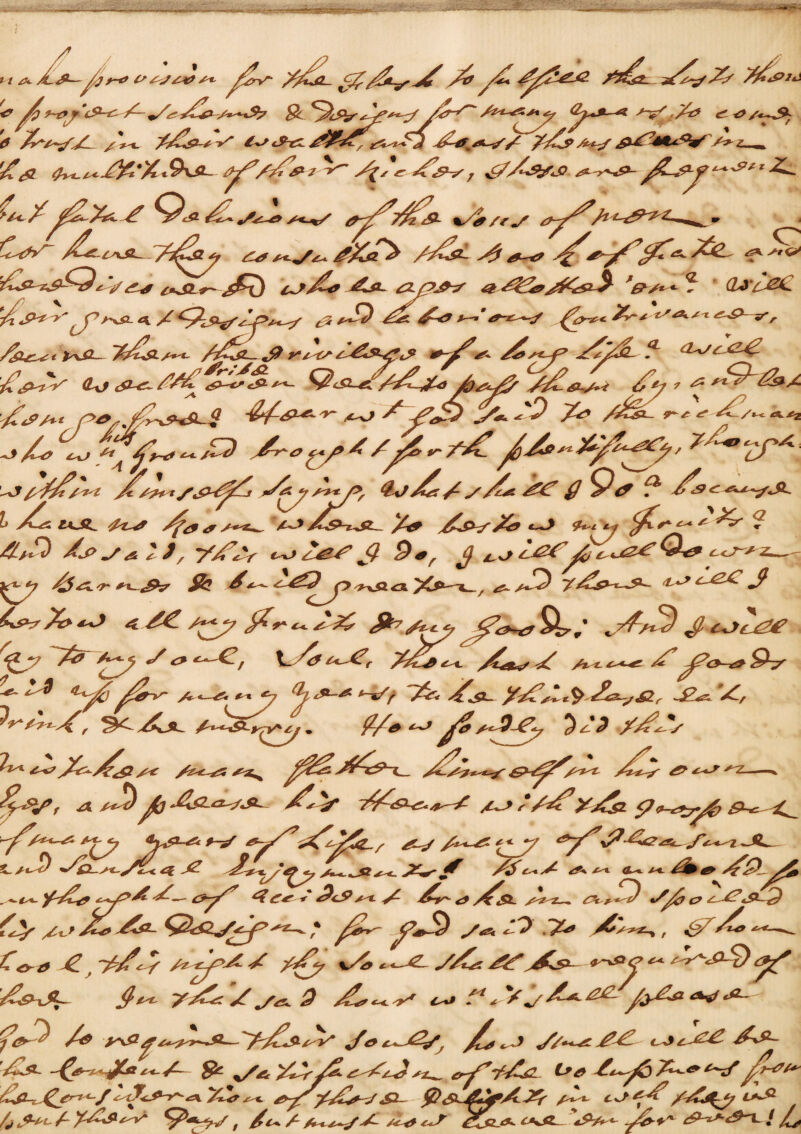 make provision for the Flesh to fulfill the Lusts there
to project schemes & Designs for many years to come,
to trust in their wealth, and boast themselves in
the multitude of their Riches, These are frequent
but fatal Delusions of the Sons of men.
For have they consulted the Book of Fate and
there discovered whole ages allotted 'em? will
their great Designs and laborious Contrivances,
secure them the Privilege of a long Life? will
their wealth bribe even Death to pass them by, and let
them go free? Hear wt God said to the rich man
who wn his Ground brought forth plentifully, though
within himself, saying, What shall I do? because
I have no Room where to bestow my Fruits?
And he said, this will I do, I will pull down
my Barnes & build greater, and there will I
bestow all my Fruits & my Goods; And I will
say to my soul, Soul, thou hast much goods
laid up for many Years, take thine Ease, Eat,
drink, & be merry. How fondly did this
mistaken man flatter himself in his own
Eyes, and please his Heart with the Prospect
of many years of Life, as many of Pleasure
and Sensual Enjoyments! But an unlook'd-fo
unthought-of accident broke in and spoiled
his whole Design; for God said to him, Thou
Fool, this night thy Soul shall be required of
thee. In that sad hour wn it shall please
God to require their souls, how small will be
the Content & satisfaction of the voluptuous from
the Consideration of those Delights in wch they've
spent their Days, but must now leave 'em for ever! ho